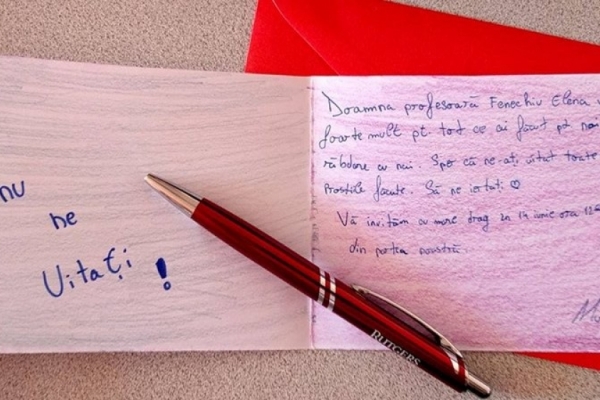 nu
ne
Uitați
!
Doamna profesoară Fenechiu Elena
foarte mult pt tot ce ai făcut pt noi
răbdare cu noi. Sper că ne-ați uitat toate
prostiile făcute. Să ne iertați ♡
Vă invităm cu mare drag în 14 iunie ora
din partea noastră.
RUTGERS